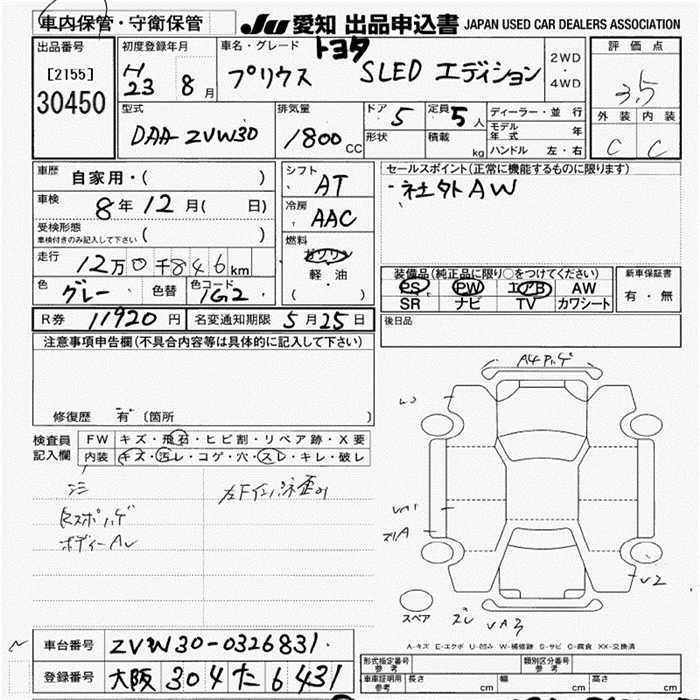 車内保管・守衛保管
JU 愛知 出品申込書 JAPAN USED CAR DEALERS ASSOCIATION
出品番号
[2155]
30450
初度登録年月
H23 8月
車名・グレード
トヨタ
プリウス SLED エディション
2WD
・
4WD
評価点
3.5
外装 内装
C C
型式
DAA-ZVW30
排気量
1800 CC
ドア 5
形状
定員 5人
積載 kg
ディーラー・並行
モデル年式 年
ハンドル 左・右
車歴
自家用・( )
車検
8年12月( 日)
受検形態
車検付きのみ記入して下さい ( )
走行
12万0千846km
色 グレー 色替 色コード 1G2
シフト
AT
冷房
AAC
燃料
ガソリン
軽・油
( )
セールスポイント(正常に機能するものに限ります)
・社外AW
装備品(純正品に限り○をつけてください)
PS PW エアB AW
SR ナビ TV カワシート
新車保証書
有・無
R券 11920円 名変通知期限 5月25日
後日品
注意事項申告欄(不具合内容等は具体的に記入して下さい)
修復歴 有 〔箇所 〕
検査員記入欄
FW キズ・飛石・ヒビ割・リペア跡・X要
内装 キズ・汚レ・コゲ・穴・スレ・キレ・破レ
ボディーAU
A4
U2
スペア
A-キズ E-エクボ U-凹み W-補修跡 S-サビ C-腐食 XX-交換済
車台番号 ZVW30-0326831
登録番号 大阪 304 た 6431
形式指定番号 参考
類別区分番号 参考
車庫証明用 参考 長さ cm 幅 cm 高さ cm